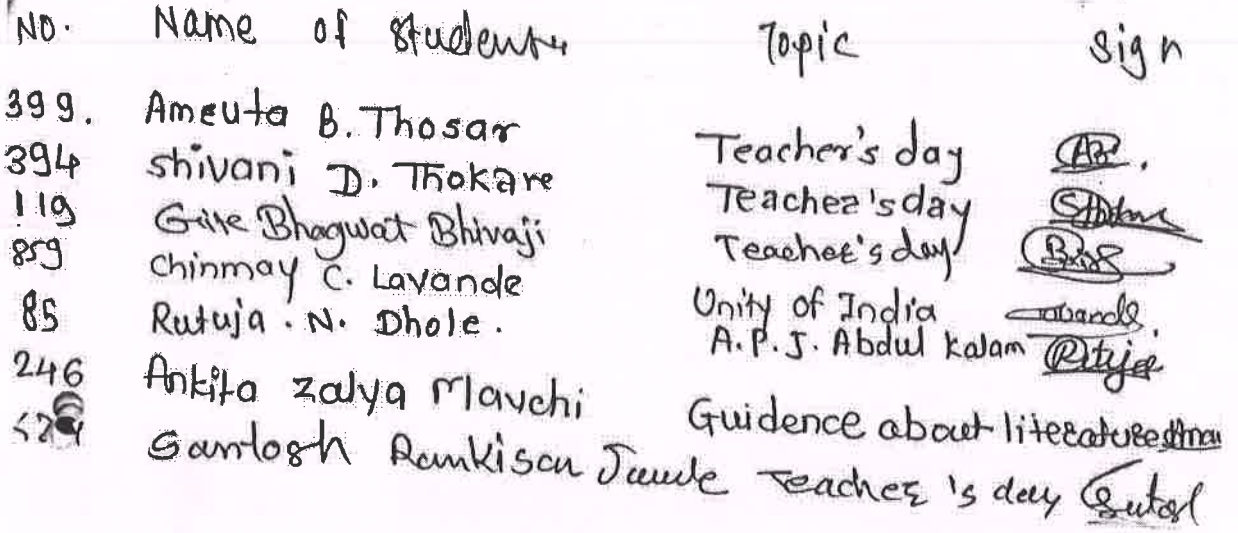 NO. Name of students Topic sign
399. Ameuta B. Thosar Teacher's day
394 shivani D. Thokare Teacher's day
119 Gire Bhagwat Bhivaji Teacher's day
859 Chinmay C. Lavande Unity of India
85 Rutuja . N. Dhole . A.P.J. Abdul Kalam Rutuja
246 Ankita zalya Mavchi Guidence about literature
Santosh Ramkisan Teacher 's day